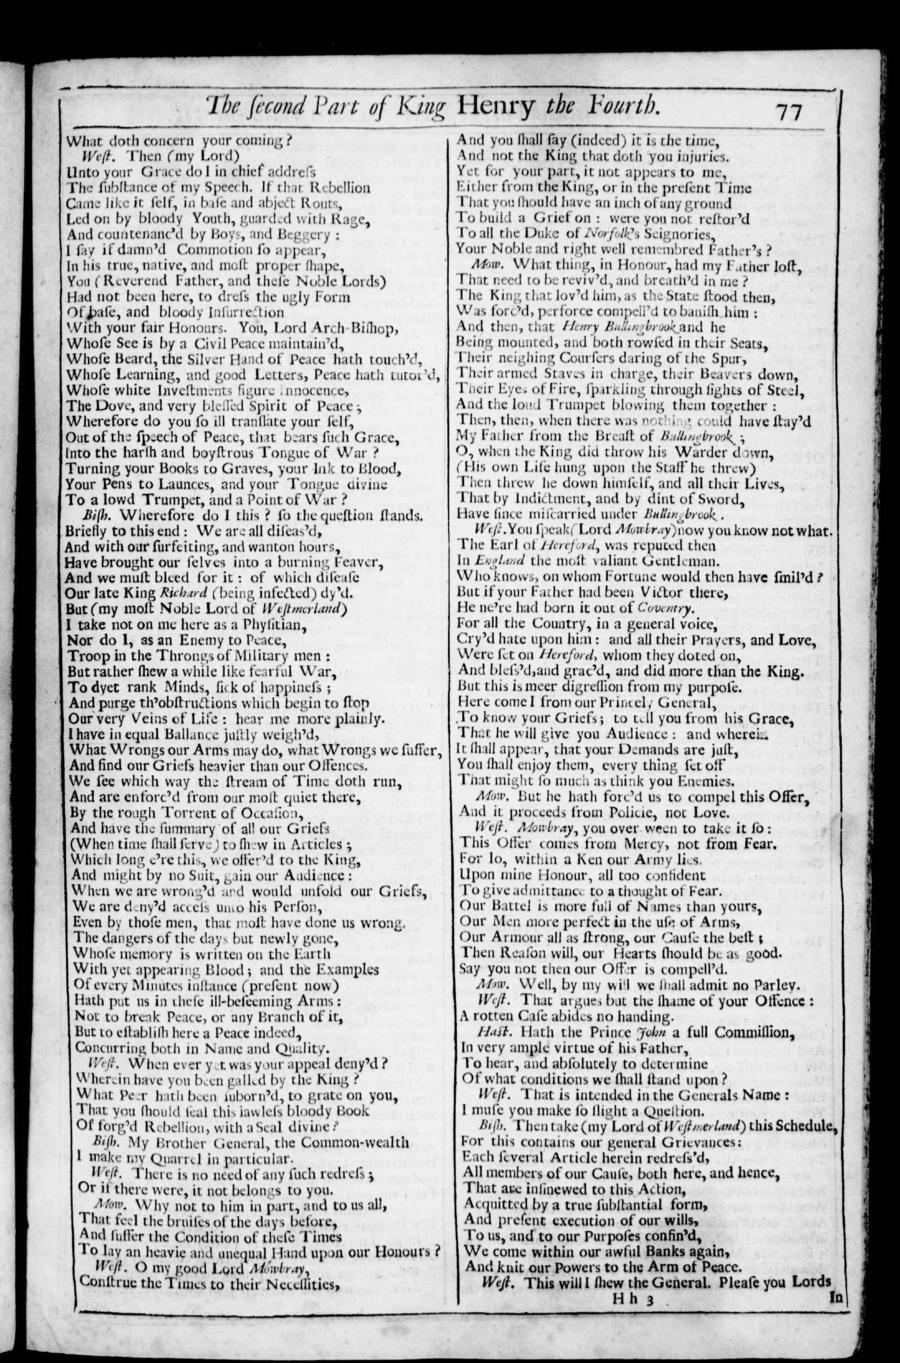 The ſecond Part of King Henry the Fourth. 77
What doth concern your coming?
Weſt. Then (my Lord)
Unto your Grace do I in chief addreſs
The ſubſtance of my Speech. If that Rebellion
Came like it ſelf, in baſe and abject Routs,
Led on by bloody Youth, guarded with Rage,
And countenanc'd by Boys, and Beggery :
I ſay if damn'd Commotion ſo appear,
In his true, native, and moſt proper ſhape,
You (Reverend Father, and theſe Noble Lords)
Had not been here, to dreſs the ugly Form
Of baſe, and bloody Inſurrection
With your fair Honours. You, Lord Arch-Biſhop,
Whoſe See is by a Civil Peace maintain'd,
Whoſe Beard, the Silver Hand of Peace hath touch'd,
Whoſe Learning, and good Letters, Peace hath tutor'd,
Whoſe white Inveſtments figure innocence,
The Dove, and very bleſſed Spirit of Peace;
Wherefore do you ſo ill tranſlate your ſelf,
Out of the ſpeech of Peace, that bears ſuch Grace,
Into the harſh and boyſtrous Tongue of War ?
Turning your Books to Graves, your Ink to Blood,
Your Pens to Launces, and your Tongue divine
To a lowd Trumpet, and a Point of War ?
Biſh. Wherefore do I this ? ſo the queſtion ſtands.
Briefly to this end : We are all diſeas'd,
And with our ſurfeiting, and wanton hours,
Have brought our ſelves into a burning Feaver,
And we muſt bleed for it : of which diſeaſe
Our late King Richard (being infected) dy'd.
But (my moſt Noble Lord of Weſtmerland)
I take not on me here as a Phyſitian,
Nor do I, as an Enemy to Peace,
Troop in the Throngs of Military men :
But rather ſhew a while like fearful War,
To dyet rank Minds, ſick of happineſs ;
And purge th'obſtructions which begin to ſtop
Our very Veins of Life : hear me more plainly.
I have in equal Ballance juſtly weigh'd,
What Wrongs our Arms may do, what Wrongs we ſuffer,
And find our Griefs heavier than our Offences.
We ſee which way the ſtream of Time doth run,
And are enforc'd from our moſt quiet there,
By the rough Torrent of Occaſion,
And have the ſummary of all our Griefs
(When time ſhall ſerve) to ſhew in Articles ;
Which long e're this, we offer'd to the King,
And might by no Suit, gain our Audience :
When we are wrong'd and would unfold our Griefs,
We are deny'd acceſs unto his Perſon,
Even by thoſe men, that moſt have done us wrong.
The dangers of the days but newly gone,
Whoſe memory is written on the Earth
With yet appearing Blood; and the Examples
Of every Minutes inſtance (preſent now)
Hath put us in theſe ill-beſeeming Arms :
Not to break Peace, or any Branch of it,
But to eſtabliſh here a Peace indeed,
Concurring both in Name and Quality.
Weſt. When ever yet was your appeal deny'd ?
Wherein have you been galled by the King ?
What Peer hath been ſuborn'd, to grate on you,
That you ſhould ſeal this lawleſs bloody Book
Of forg'd Rebellion, with a Seal divine ?
Biſh. My Brother General, the Common-wealth
I make my Quarrel in particular.
Weſt. There is no need of any ſuch redreſs ;
Or if there were, it not belongs to you.
Mow. Why not to him in part, and to us all,
That feel the bruiſes of the days before,
And ſuffer the Condition of theſe Times
To lay an heavie and unequal Hand upon our Honours ?
Weſt. O my good Lord Mowbray,
Conſtrue the Times to their Neceſſities,
And you ſhall ſay (indeed) it is the time,
And not the King that doth you injuries.
Yet for your part, it not appears to me,
Either from the King, or in the preſent Time
That you ſhould have an inch of any ground
To build a Grief on : were you not reſtor'd
To all the Duke of Norfolk's Seignories,
Your Noble and right well remembred Father's ?
Mow. What thing, in Honour, had my Father loſt,
That need to be reviv'd, and breath'd in me ?
The King that lov'd him, as the State ſtood then,
Was forc'd, perforce compell'd to baniſh him :
And then, that Henry Bullingbrook and he
Being mounted, and both rowſed in their Seats,
Their neighing Courſers daring of the Spur,
Their armed Staves in charge, their Beavers down,
Their Eyes of Fire, ſparkling through ſights of Steel,
And the loud Trumpet blowing them together :
Then, then, when there was nothing could have ſtay'd
My Father from the Breaſt of Bullingbrook ;
O, when the King did throw his Warder down,
(His own Life hung upon the Staff he threw)
Then threw he down himſelf, and all their Lives,
That by Indictment, and by dint of Sword,
Have ſince miſcarried under Bullingbrook.
Weſt. You ſpeak (Lord Mowbray) now you know not what.
The Earl of Hereford, was reputed then
In England the moſt valiant Gentleman.
Who knows, on whom Fortune would then have ſmil'd ?
But if your Father had been Victor there,
He ne're had born it out of Coventry.
For all the Country, in a general voice,
Cry'd hate upon him : and all their Prayers, and Love,
Were ſet on Hereford, whom they doted on,
And bleſs'd, and grac'd, and did more than the King.
But this is meer digreſſion from my purpoſe.
Here come I from our Princely General,
To know your Griefs ; to tell you from his Grace,
That he will give you Audience : and wherein
It ſhall appear, that your Demands are juſt,
You ſhall enjoy them, every thing ſet off
That might ſo much as think you Enemies.
Mow. But he hath forc'd us to compel this Offer,
And it proceeds from Policie, not Love.
Weſt. Mowbray, you over ween to take it ſo :
This Offer comes from Mercy, not from Fear.
For lo, within a Ken our Army lies.
Upon mine Honour, all too confident
To give admittance to a thought of Fear.
Our Battel is more full of Names than yours,
Our Men more perfect in the uſe of Arms,
Our Armour all as ſtrong, our Cauſe the beſt ;
Then Reaſon will, our Hearts ſhould be as good.
Say you not then our Offer is compell'd.
Mow. Well, by my will we ſhall admit no Parley.
Weſt. That argues but the ſhame of your Offence :
A rotten Caſe abides no handing.
Haſt. Hath the Prince John a full Commiſſion,
In very ample virtue of his Father,
To hear, and abſolutely to determine
Of what conditions we ſhall ſtand upon ?
Weſt. That is intended in the Generals Name :
I muſe you make ſo ſlight a Queſtion.
Biſh. Then take (my Lord of Weſtmerland) this Schedule,
For this contains our general Grievances :
Each ſeveral Article herein redreſs'd,
All members of our Cauſe, both here, and hence,
That are inſinewed to this Action,
Acquitted by a true ſubſtantial form,
And preſent execution of our wills,
To us, and to our Purpoſes confin'd,
We come within our awful Banks again,
And knit our Powers to the Arm of Peace.
Weſt. This will I ſhew the General. Pleaſe you Lords
H h 3 In